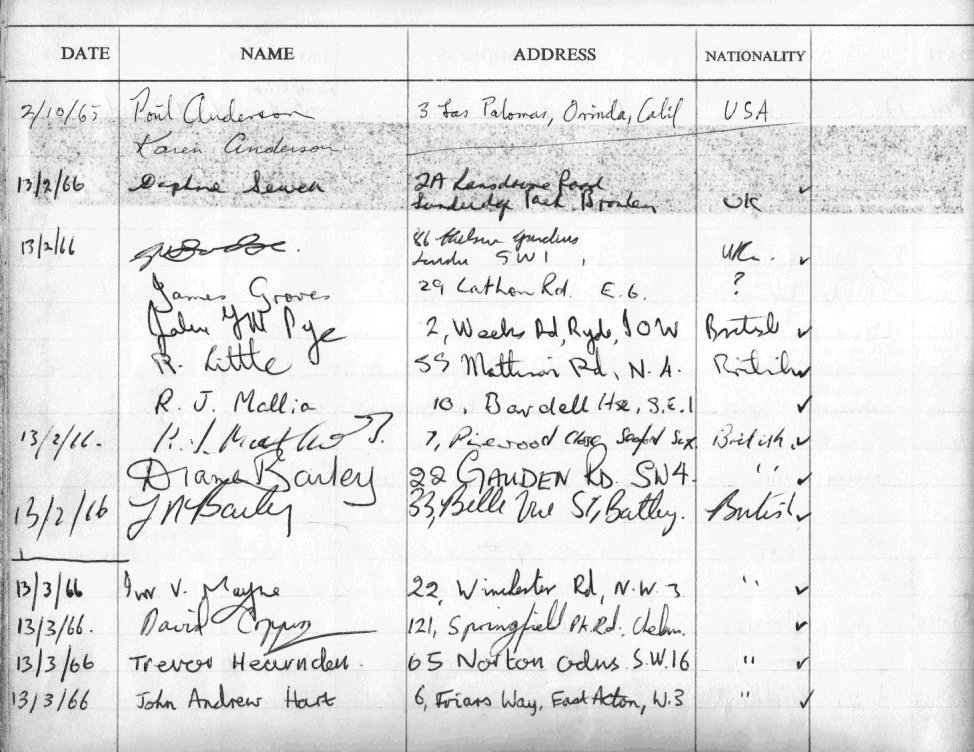 DATE NAME ADDRESS NATIONALITY
2/10/65 Poul Anderson 3 Las Palomas, Orinda, Calif USA
Karen Anderson
13/2/66 Daphne Sewell 2A Lansdowne Road
Sundridge Park Bromley UK
13/2/66 86 Gardens
London SW1 UK.
James Groves 29 Rd. E.6. ?
John Pye 2, Weeks Rd, Ryde, IOW British
R. Little 55 Rd, N.4. British
R. J. Mallia 10, Bardell Hse, S.E.1
13/2/66. 7, Pinewood Close, Seaford Sx. British.
Diane Bailey 22 GAUDEN RD. SW4. "
13/2/66 Bailey 33, Belle Vue St, Batley. British
13/3/66 V. Mayne 22, Winchester Rd, N.W.3 "
13/3/66. David 121, Springfield Pk. Rd, Chelm.
13/3/66 Trevor Hearnden. 65 Norton Gdns S.W.16 "
13/3/66 John Andrew Hart 6, Friars Way, East Acton, W.3 "